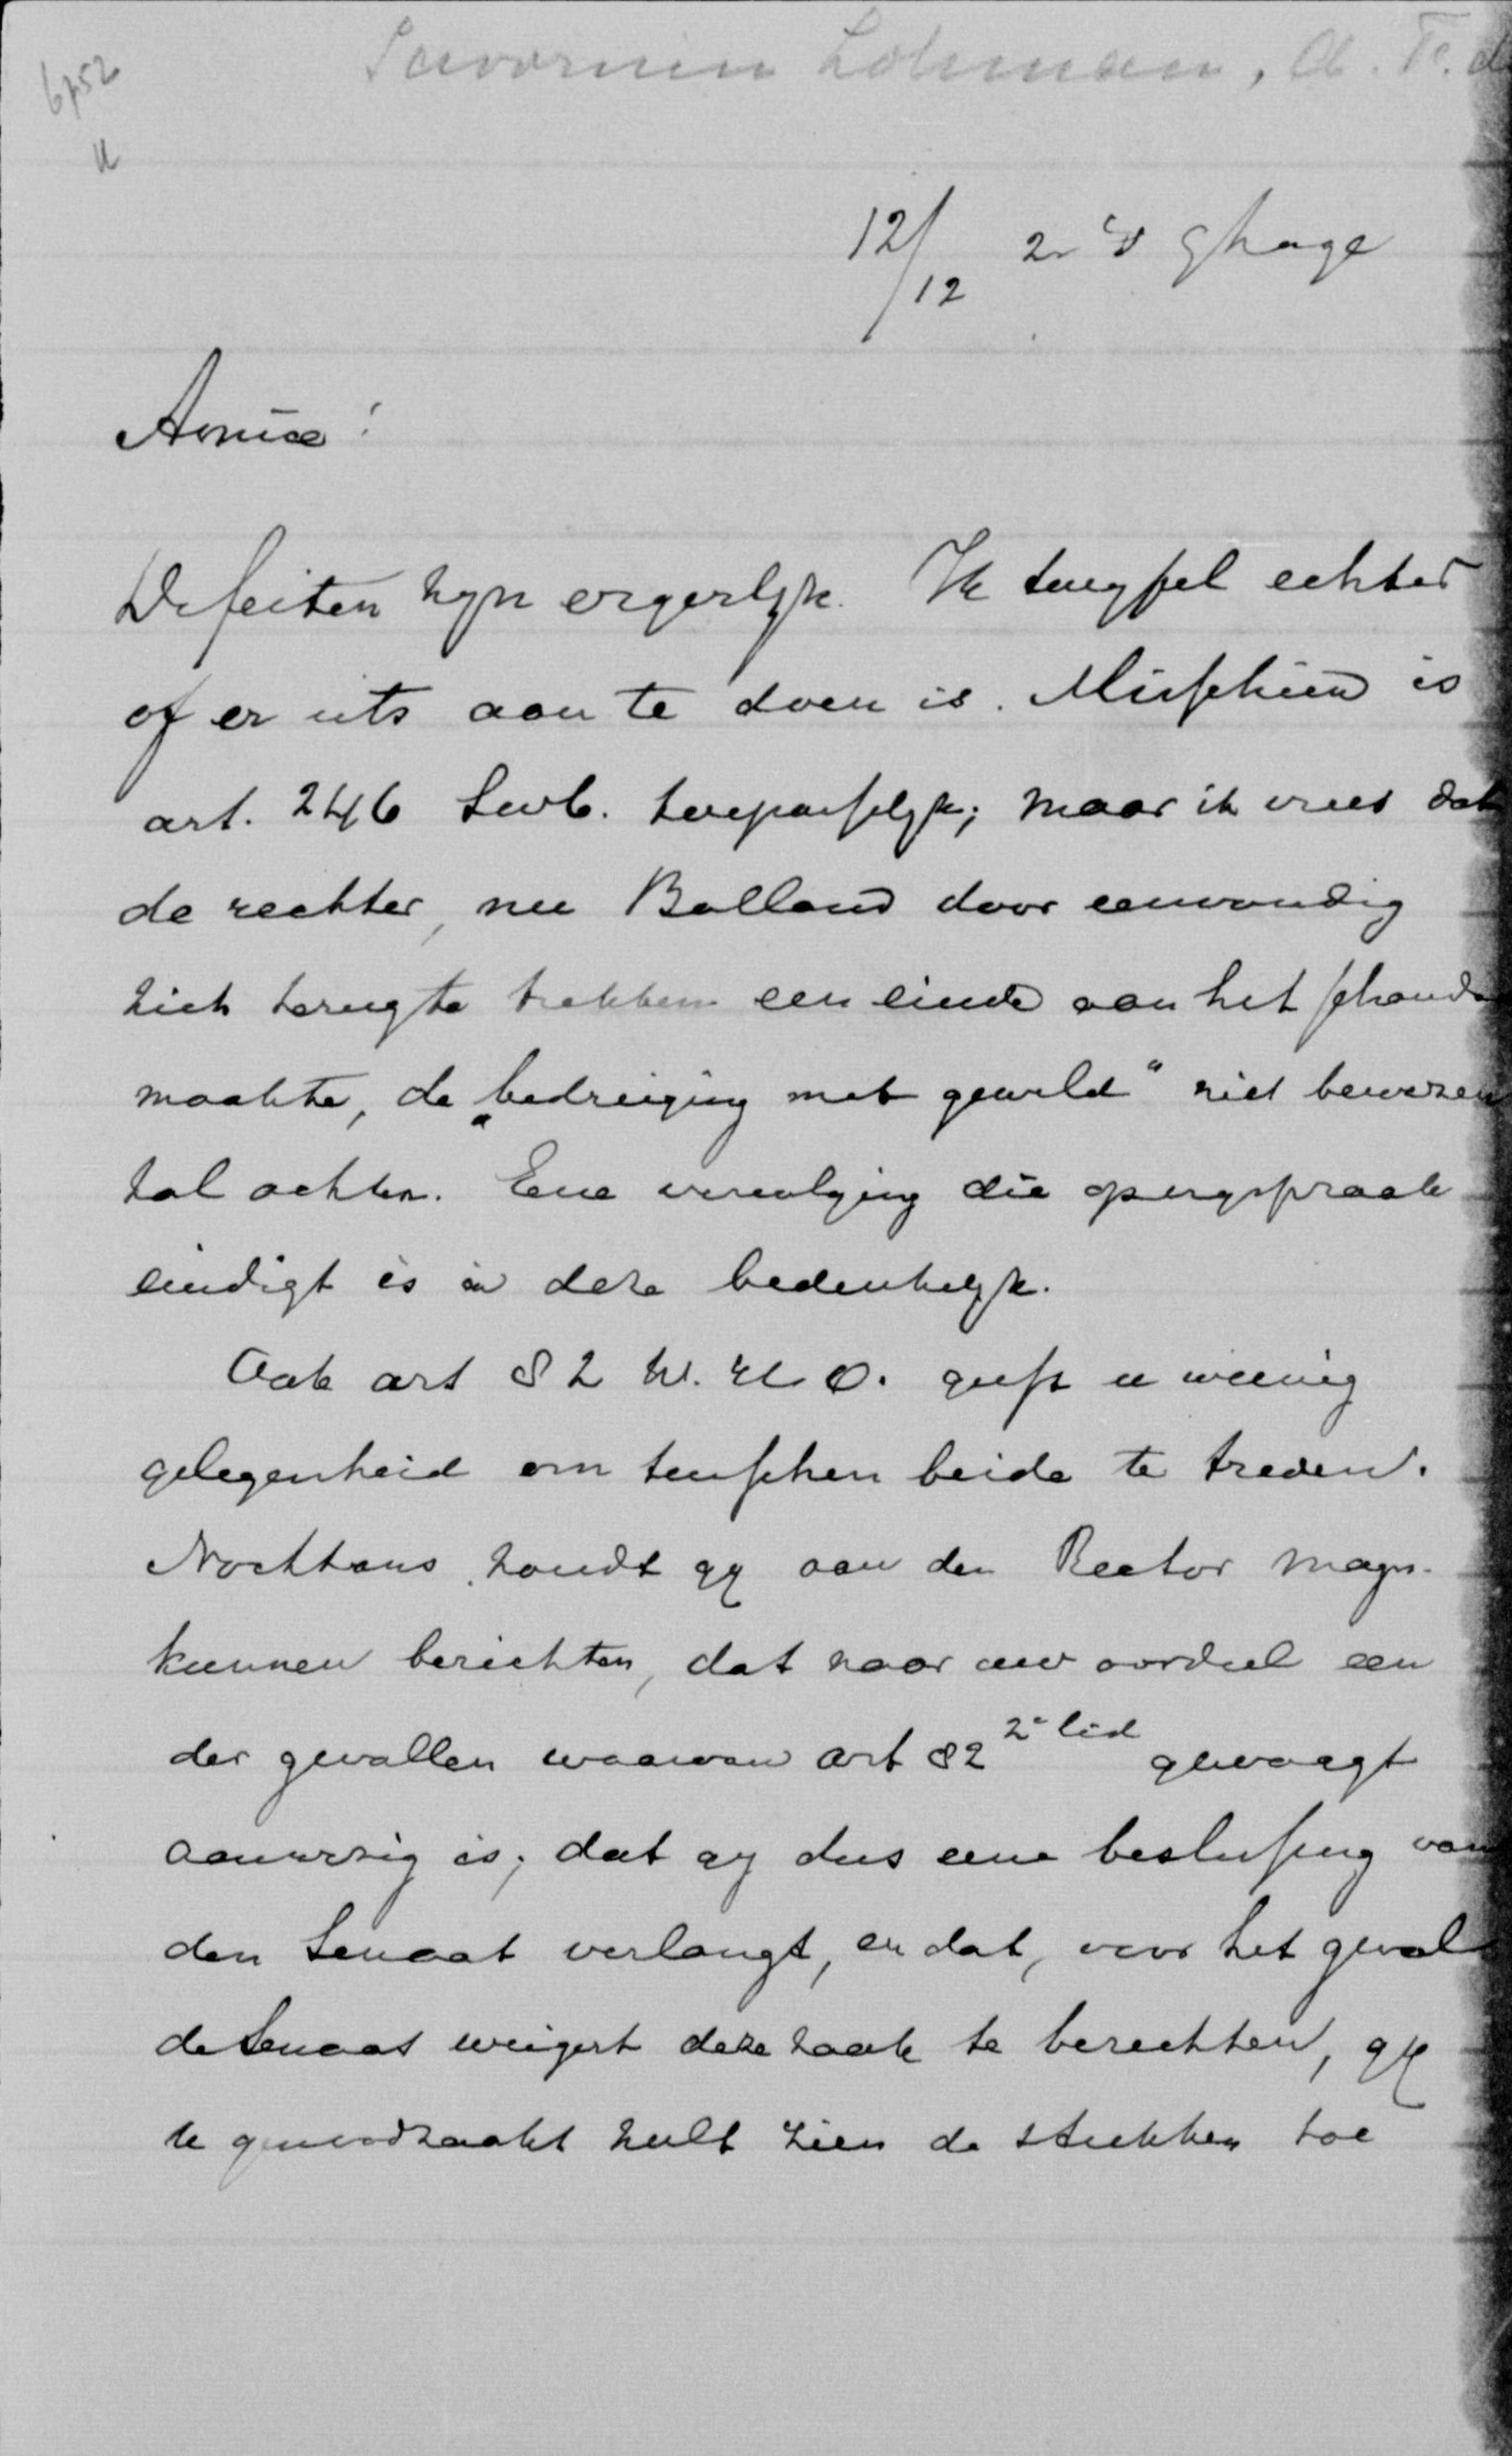 Savornin Lohman, A. F. d
6752
12/12 2 's Ghage
Amice!
De feiten zijn ergerlijk. Ik twijfel echter
of er iets aan te doen is. Misschien is
art. 246 Swb. toepasselijk; maar ik vrees dat
de rechter, nu Bolland door eenvoudig
zich terug te trekken een einde aan het schanda
maakte, de „bedreiging met geweld" niet bewezen
zal achten. Eene vervolging die op vrijspraak
eindigt is in deze bedenkelijk.
Ook art 82 W. H. O. geeft u weinig
gelegenheid om tusschen beide te treden.
Nochtans zoudt gij aan den Rector Magn.
kunnen berichten, dat naar uw oordeel een
der gevallen waarvan art 82 2e lid gewaagt
aanwezig is; dat gij dus eene beslissing van
den Senaat verlangt, en dat, voor het geval
de Senaat weigert deze zaak te berechten, gij
u genoodzaakt zult zien de stukken toe